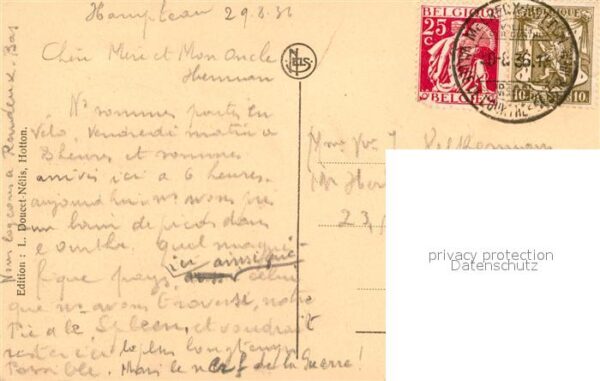 Hampteau 29.8.36
Chère Mère et Mon Oncle
Herman
Ns sommes partis en
vélo, Vendredi matin a
8 heures et sommes
arrivés ici a 6 heures.
aujourd'hui ns avons pris
un bain de pieds dans
l'ourthe. Quel magni-
fique pays, ici ainsi que celui
que ns avons traversé, notre
et voudrait
rester ici le plus longtemps
Possible. Mais le nerf de la Guerre !
Nous logeons a Rendeux Bas
Edition : L. Doucet-Nélis, Hotton.
NELS
25c
BELGIQUE
BELGIE
BELGIQUE-BELGIË
10 10
Mme Vve J.
23,
privacy protection
Datenschutz